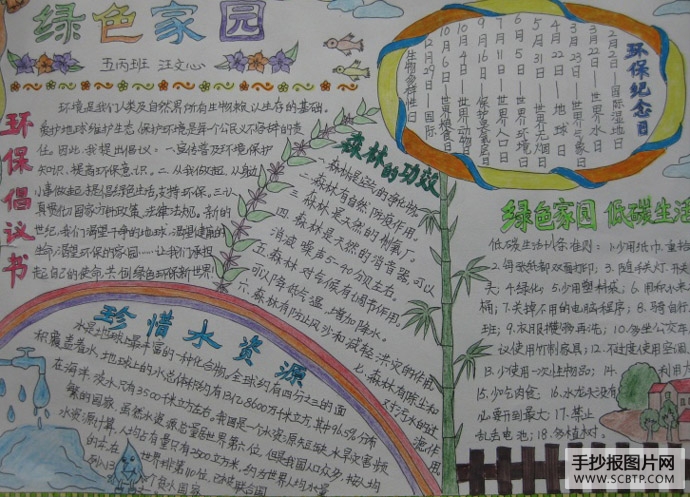 绿色家园
五丙班 汪文心
环保倡议书
环境是我们人类及自然界所有生物赖以生存的基础。
爱护地球维护生态,保护环境是每个公民义不容辞的责
任。因此,我提出倡议:一.宣传普及环境保护
知识,提高环保意识。二.从我做起,从身边
小事做起,提倡绿色生活,支持环保。三.认
真贯彻国家方针政策、法律法规。新的
世纪,我们渴望干净的地球,渴望健康的
生命,渴望环保的家园……让我们承担
起自己的使命,共创绿色环保新世界!
森林的功效
一.森林是空气的净化物。
二.森林有自然防疫作用。
三.森林是天然的制氧厂。
四.森林是天然的消音器。可以
消减噪声5-40分贝左右。
五.森林对气候有调节作用。
可以降低气温,增加降水。
六.森林有防止风沙和减轻洪灾的作用
七.森林有除尘和
对污水的过
滤作用
环保纪念日
2月2日——国际湿地日
3月22日——世界水日
3月23日——世界气象日
4月22日——地球日
5月31日——世界无烟日
6月5日——世界环境日
7月11日——世界人口日
9月16日——保护臭氧层日
10月4日——世界动物日
10月16日——世界粮食日
12月29日——国际
生物多样性日
绿色家园 低碳生活
低碳生活行为准则:1.少用纸巾,重拾
2.每张纸都双面打印;3.随手关灯、开关
4.绿化;5.少用塑料袋;6.用淘米水
桶;7.关掉不用的电脑程序;8.骑自行
班;9.衣服攒够再洗;10.多坐公交车
议使用竹制家具;12.不过度使用空调
13.少使用一次性用品;14.利用太
15.少吃肉食 16.水龙头没有
必要开到最大;17.禁止
乱丢电池;18.多植树。
珍惜水资源
水是地球上最丰富的一种化合物。全球约有四分之三的面
积覆盖着水,地球上的水总体积约有13亿8600万千立方,其中96.5%分布
在海洋,淡水只有3500千立方左右。我国是一个水资源短缺,水旱灾害频
繁的国家,虽然水资源总量居世界第六位,但是我国人口众多,按人均
水资源计算,人均占有量只有2500立方米,约为世界人均水量
世界排第110位,已被联合国
个贫水国家
手抄报图片网
WWW.SCBTP.COM